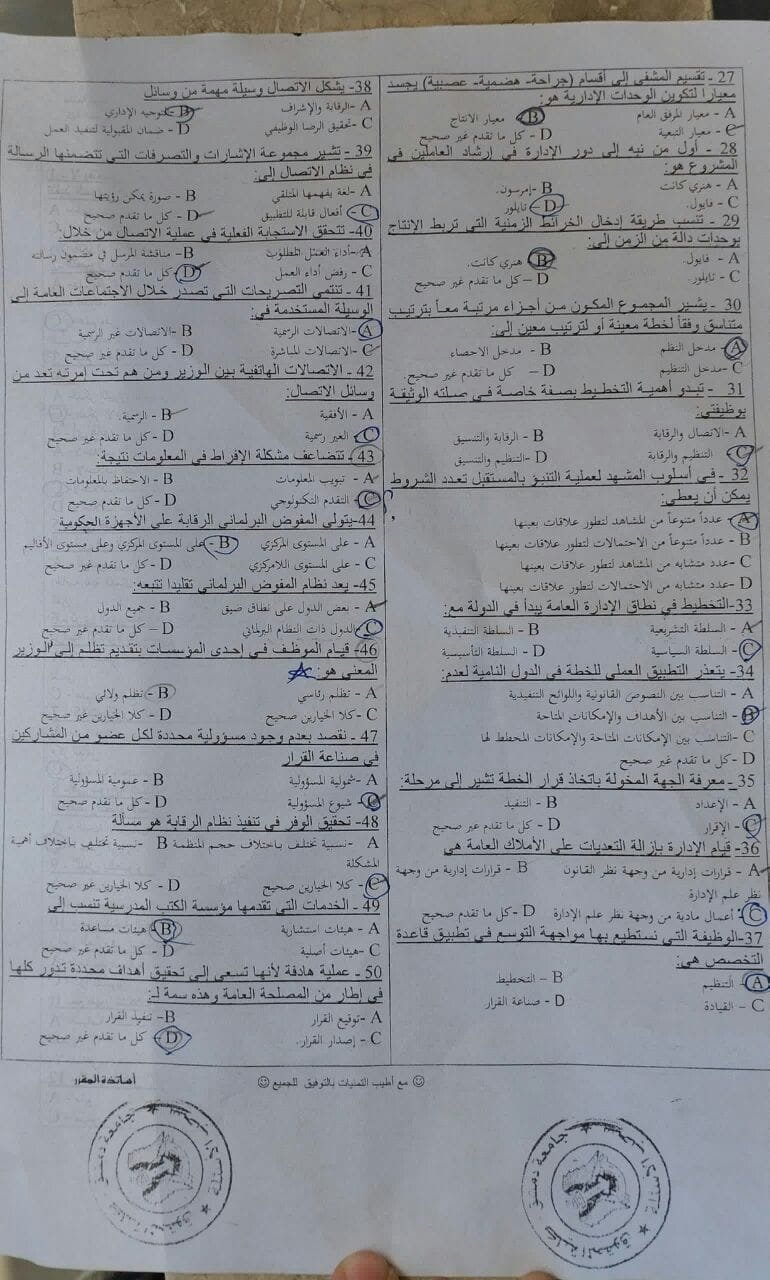 27 - تقسيم المشفى إلى أقسام (جراحة- هضمية- عصبية) يجسد
معياراً لتكوين الوحدات الإدارية هو:
A - معيار المرفق العام B - معيار الانتاج
C - معيار التبعية D - كل ما تقدم غير صحيح
28 - أول من نبه إلى دور الإدارة في إرشاد العاملين في
المشروع هو:
A - هنري كانت B - إمرسون.
C - فايول. D - تايلور
29 - تنسب طريقة إدخال الخرائط الزمنية التي تربط الإنتاج
بوحدات دالة من الزمن إلى:
A - فايول. B - هنري كانت.
C - تايلور. D – كل ما تقدم غير صحيح
30 - يشير المجموع المكون من أجزاء مرتبة معاً بترتيب
متناسق وفقاً لخطة معينة أو لترتيب معين إلى:
A - مدخل النظم B - مدخل الاحصاء
C -مدخل التنظيم D – كل ما تقدم غير صحيح.
31 - تبدو أهمية التخطيط بصفة خاصة في صلته الوثيقة
بوظيفتي:
A -الاتصال والرقابة B - الرقابة والتنسيق
C - التنظيم والرقابة D -التنظيم والتنسيق
32 - في أسلوب المشهد لعملية التنبؤ بالمستقبل تعدد الشروط
يمكن أن يعطي:
A - عدداً متنوعاً من المشاهد لتطور علاقات بعينها
B - عدداً متنوعاً من الاحتمالات لتطور علاقات بعينها
C - عدد متشابه من المشاهد لتطور علاقات بعينها
D -عدد متشابه من الاحتمالات لتطور علاقات بعينها
33-التخطيط في نطاق الإدارة العامة يبدأ في الدولة مع:
A - السلطة التشريعية B - السلطة التنفيذية
C - السلطة السياسية D - السلطة التأسيسية
34- يتعذر التطبيق العملي للخطة في الدول النامية لعدم:
A - التناسب بين النصوص القانونية واللوائح التنفيذية
B - التناسب بين الأهداف والإمكانات المتاحة
C -التناسب بين الإمكانات المتاحة والإمكانات المخطط لها
D -كل ما تقدم غير صحيح
35 - معرفة الجهة المخولة باتخاذ قرار الخطة تشير إلى مرحلة:
A - الإعداد B - التنفيذ
C -الإقرار D - كل ما تقدم غير صحيح
36- قيام الإدارة بإزالة التعديات على الأملاك العامة هي
A - قرارات إدارية من وجهة نظر القانون B - قرارات إدارية من وجهة
نظر علم الإدارة
C - أعمال مادية من وجهة نظر علم الإدارة D -كل ما تقدم صحيح
37-الوظيفة التي نستطيع بها مواجهة التوسع في تطبيق قاعدة
التخصص هي:
A - التنظيم B - التخطيط
C - القيادة D - صناعة القرار
38- يشكل الاتصال وسيلة مهمة من وسائل
A -الرقابة والإشراف B -التوجيه الإداري
C -تحقيق الرضا الوظيفي D - ضمان المقبولية لتنفيذ العمل
39 - تشير مجموعة الإشارات والتصرفات التي تتضمنها الرسالة
في نظام الاتصال إلى:
A -لغة يفهمها المتلقي B - صورة يمكن رؤيتها
C - أفعال قابلة للتطبيق D - كل ما تقدم صحيح
40- تتحقق الاستجابة الفعلية في عملية الاتصال من خلال:
A -أداء العمل المطلوب B - مناقشة المرسل في مضمون رسالته
C - رفض أداء العمل D -كل ما تقدم صحيح
41 - تنتمي التصريحات التي تصدر خلال الاجتماعات العامة إلى
الوسيلة المستخدمة في:
A -الاتصالات الرسمية B -الاتصالات غير الرسمية
C -الاتصالات المباشرة D - كل ما تقدم غير صحيح
42 - الاتصالات الهاتفية بين الوزير ومن هم تحت إمرته تعد من
وسائل الاتصال:
A - الأفقية B - الرسمية.
C - الغير رسمية D - كل ما تقدم غير صحيح
43 - تتضاعف مشكلة الإفراط في المعلومات نتيجة:
A - تبويب المعلومات B - الاحتفاظ بالمعلومات
C - التقدم التكنولوجي D - كل ما تقدم غير صحيح
44-يتولى المفوض البرلماني الرقابة على الأجهزة الحكومية
A - على المستوى المركزي B -على المستوى المركزي وعلى مستوى الأقاليم
C - على المستوى اللامركزي D - كل ما تقدم غير صحيح
45- يعد نظام المفوض البرلماني تقليدا تتبعه:
A - بعض الدول على نطاق ضيق B - جميع الدول
C -الدول ذات النظام البرلماني D – كل ما تقدم غير صحيح
46- قيام الموظف في إحدى المؤسسات بتقديم تظلم إلى الوزير
المعني هو:
A - تظلم رئاسي B -تظلم ولائي
C -كلا الخيارين صحيح D - كلا الخيارين غير صحيح
47 - نقصد بعدم وجود مسؤولية محددة لكل عضو من المشاركين
في صناعة القرار
A - شمولية المسؤولية B - عمومية المسؤولية
C - شيوع المسؤولية D - كل ما تقدم صحيح
48- تحقيق الوفر في تنفيذ نظام الرقابة هو مسألة
A -نسبية تختلف باختلاف حجم المنظمة B -نسبية تختلف باختلاف أهمية
المشكلة
C - كلا الخيارين صحيح D - كلا الخيارين غير صحيح
49 - الخدمات التي تقدمها مؤسسة الكتب المدرسية تنسب إلى
A - هيئات استشارية B -هيئات مساعدة
C -هيئات أصلية D - كل ما تقدم غير صحيح
50 - عملية هادفة لأنها تسعى إلى تحقيق أهداف محددة تدور كلها
في إطار من المصلحة العامة وهذه سمة لـ:
A -توقيع القرار B- تنفيذ القرار
C - إصدار القرار. D - كل ما تقدم غير صحيح
☺ مع أطيب التمنيات بالتوفيق للجميع ☺ أساتذة المقرر
جامعة دمشق
كلية الحقوق
جامعة دمشق
كلية الحقوق